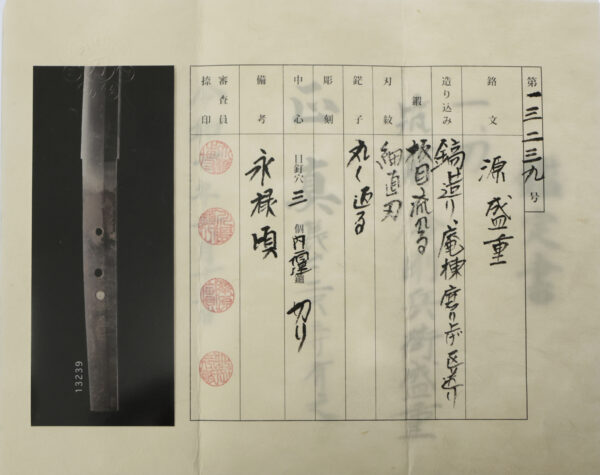 第一三二三九号
銘文 源盛重
造り込み 鎬造り、庵棟 磨り上げ 区送り
鍛 板目流れる
刃紋 細直刃
鋩子 丸く返る
彫刻
中心 目釘穴 三個 内 鑑 切り
備考 永禄頃
審査員捺印
13239